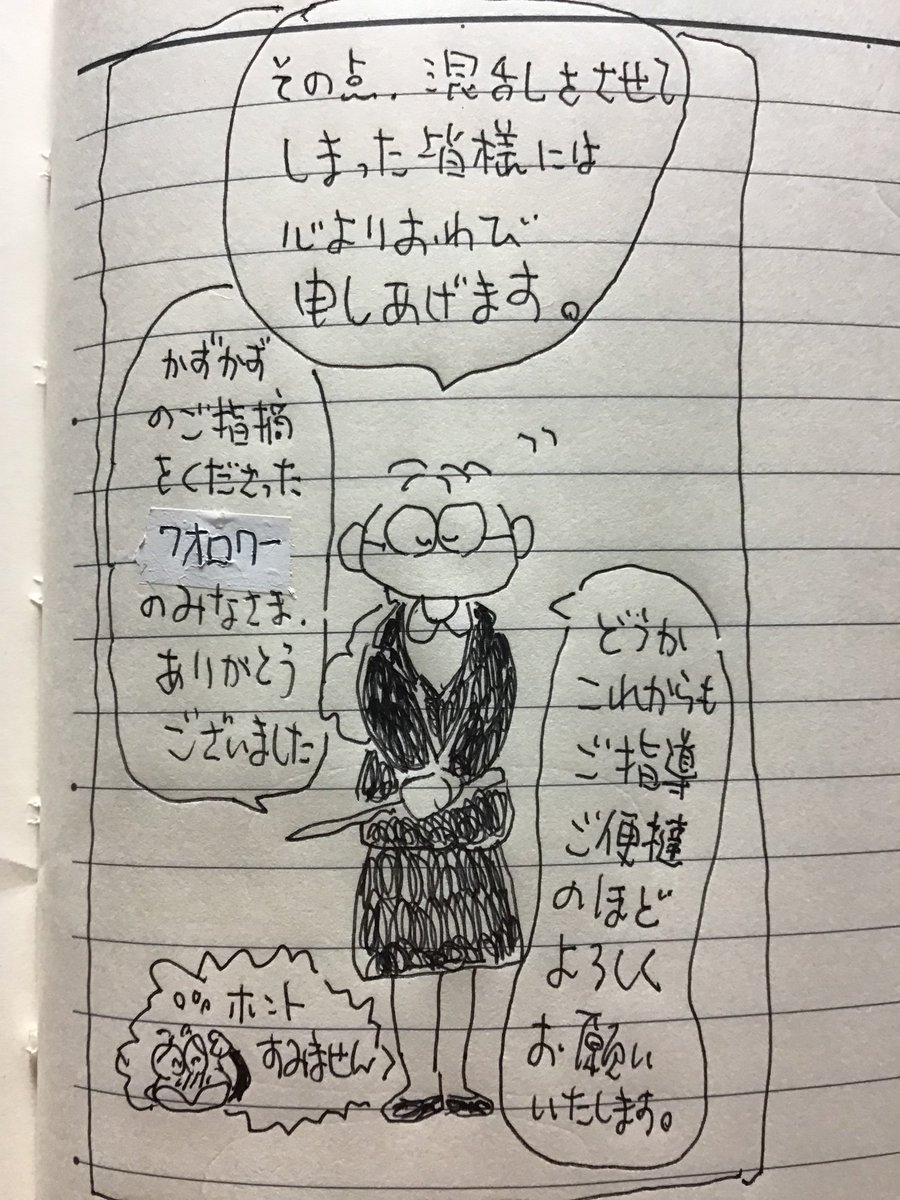 その点、混乱をさせて
しまった皆様には
心よりおわび
申しあげます。
かずかず
のご指摘
をくださった
フオロワー
のみなさま、
ありがとう
ございました
どうか
これからも
ご指導
ご便撻
のほど
よろしく
お願い
いたします。
ホント
すみません